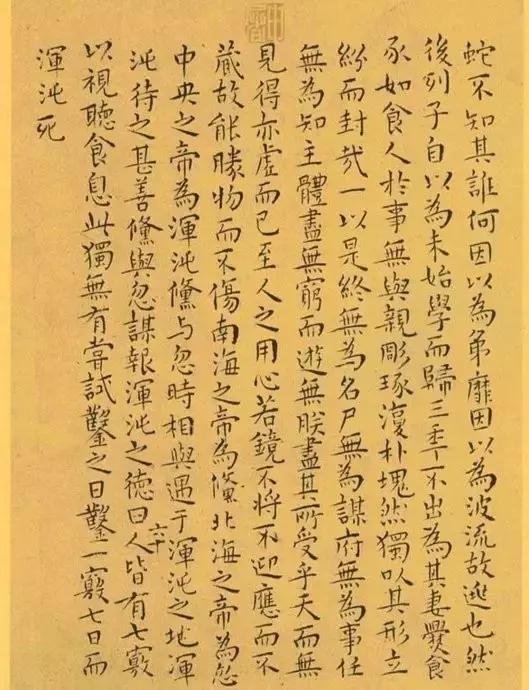 蛇不知其誰何因以為弟靡因以為波流故逃也然
後列子自以為未始學而歸三年不出為其妻爨食
豕如食人於事無與親彫琢復朴塊然獨以其形立
紛而封哉一以是終無為名尸無為謀府無為事任
無為知主體盡無窮而遊無朕盡其所受乎天而無
見得亦虛而已至人之用心若鏡不將不迎應而不
藏故能勝物而不傷南海之帝為儵北海之帝為忽
中央之帝為渾沌儵与忽時相與遇于渾沌之地渾
六十
沌待之甚善儵與忽謀報渾沌之德曰人皆有七竅
以視聽食息此獨無有嘗試鑿之日鑿一竅七日而
渾沌死